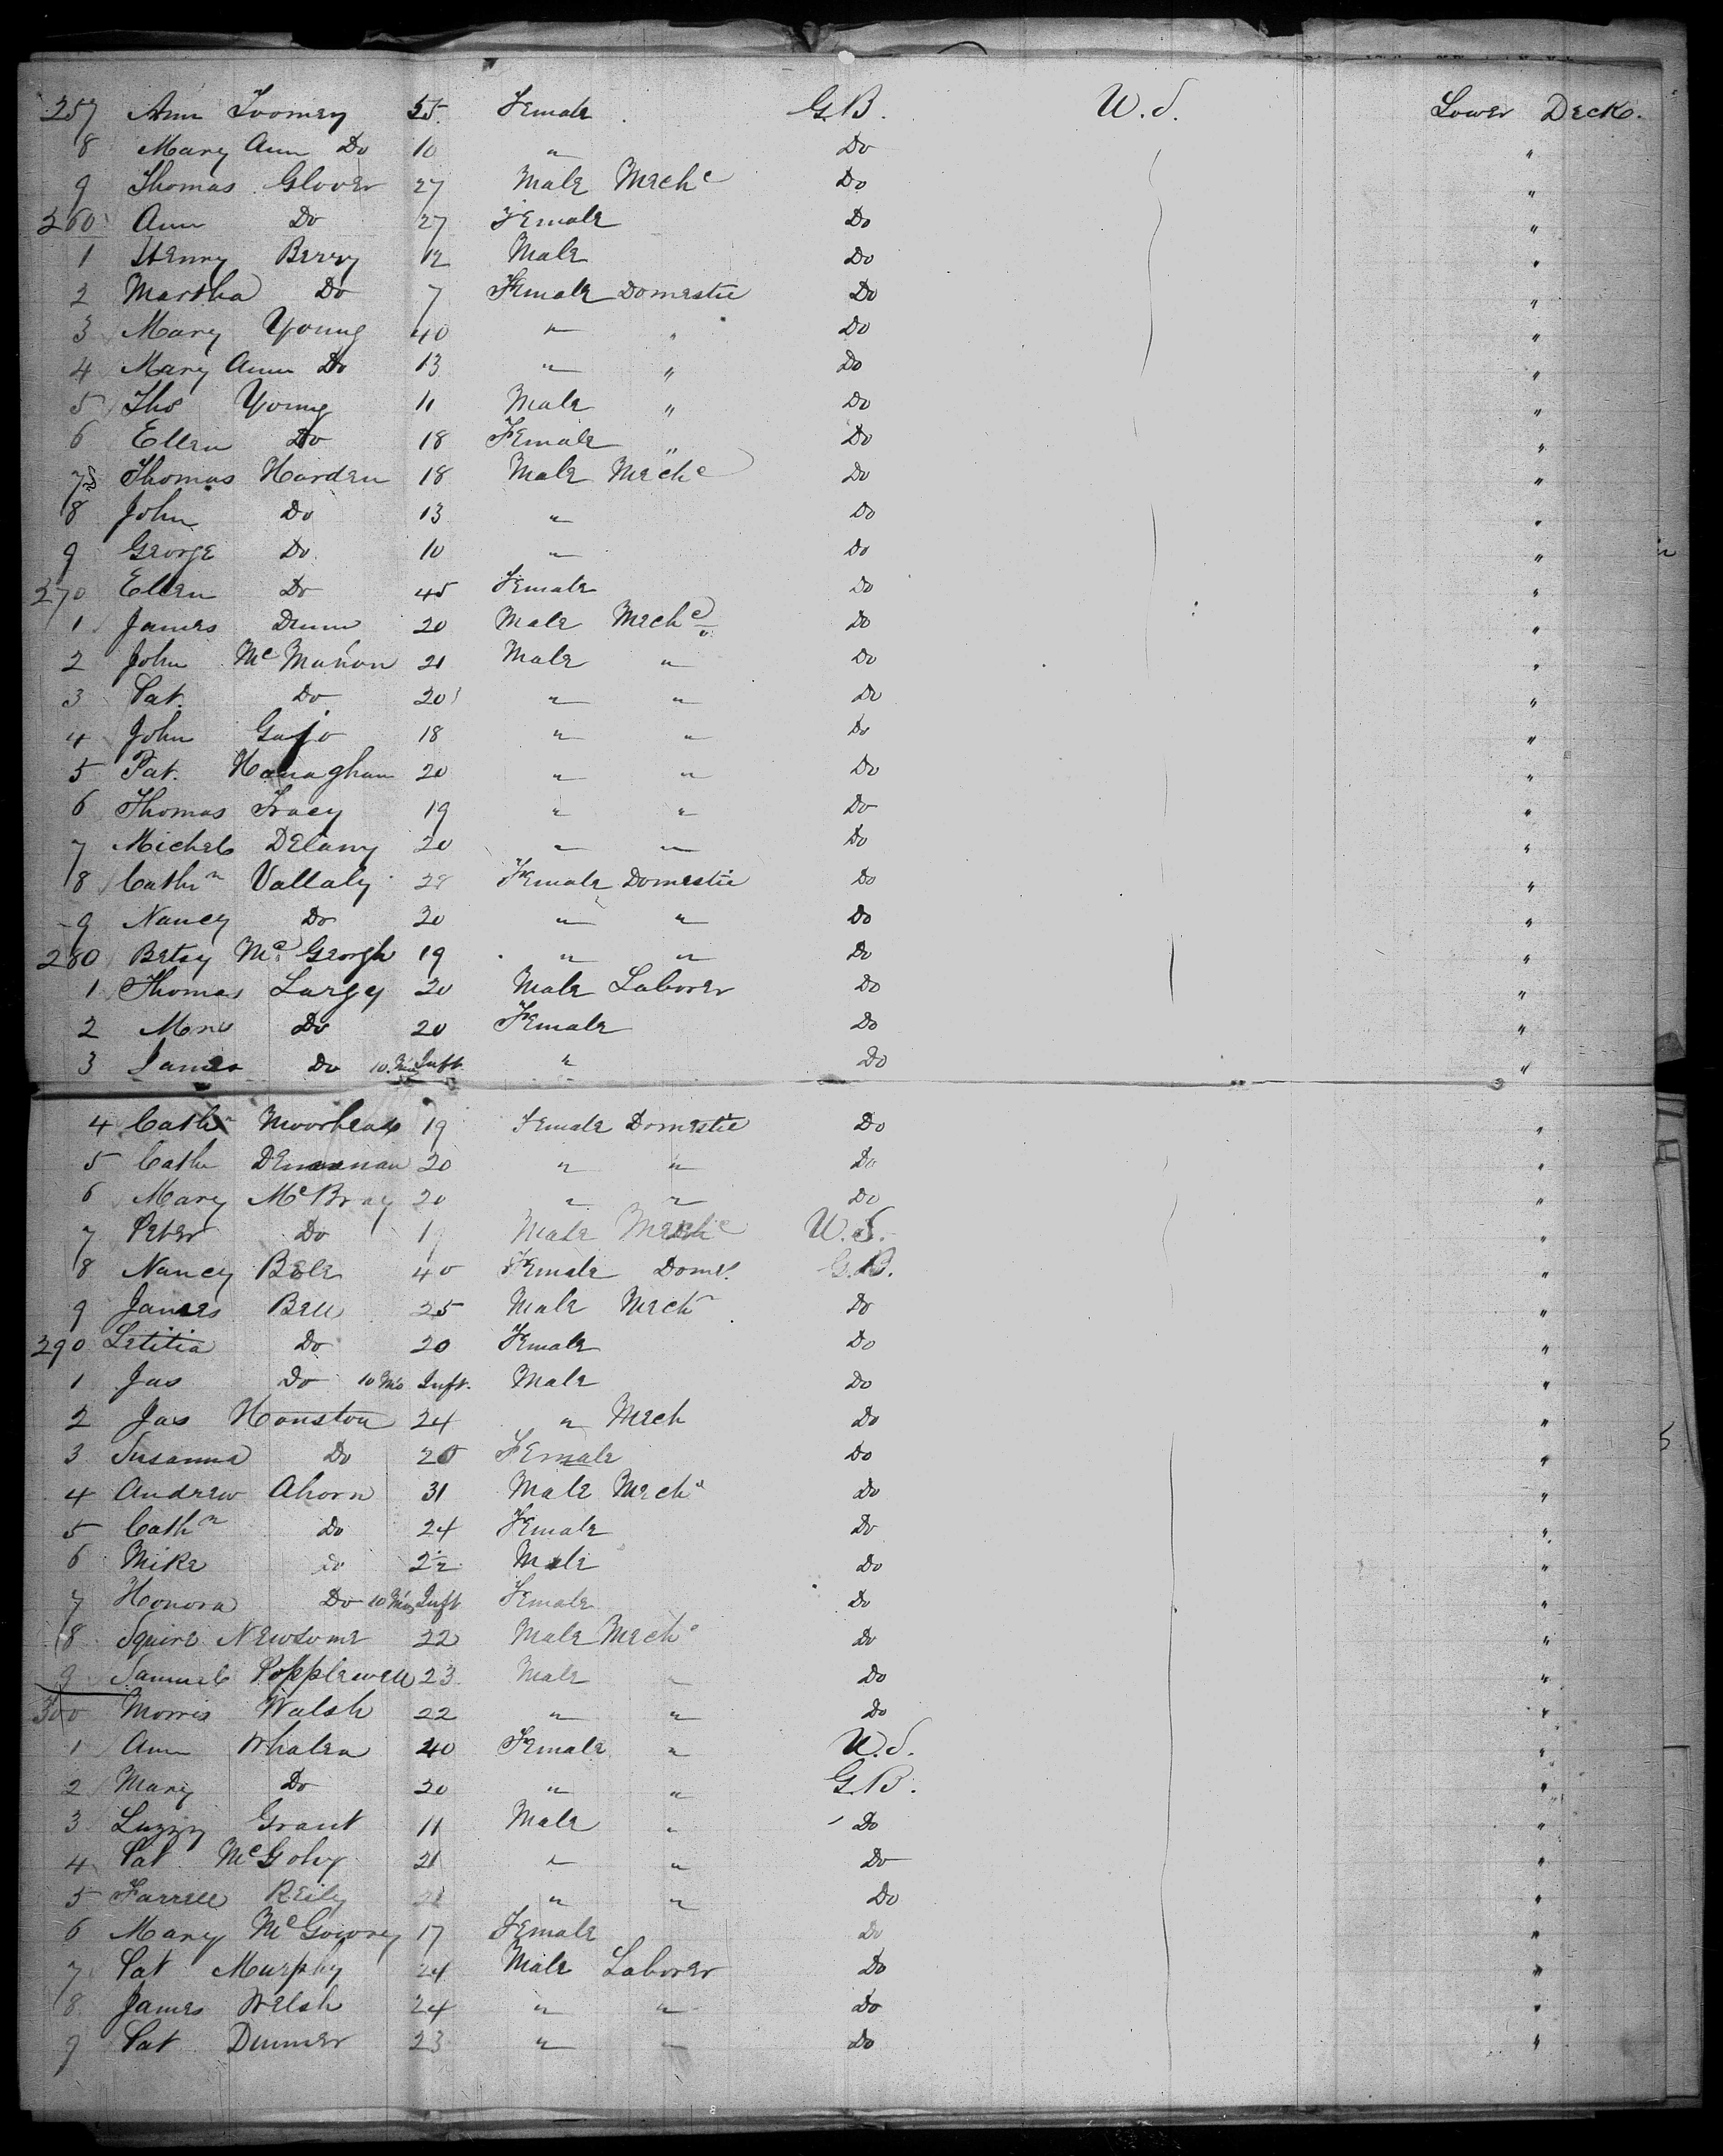 257 Ann Toomey 55 Female G.B. U.S. Lower Deck.
8 Mary Ann Do 10 " Do "
9 Thomas Glover 27 Male Mechc Do "
260 Ann Do 27 Female Do "
1 Henry Berry 12 Male Do "
2 Martha Do 7 Female Domestic Do "
3 Mary Young 40 " " Do "
4 Mary Ann Do 13 " " Do "
5 Thos Young 11 Male " Do "
6 Ellen Do 18 Female " Do "
7 Thomas Harden 18 Male Mechc Do "
8 John Do 13 " Do "
9 George Do 10 " Do "
270 Ellen Do 45 Female Do "
1 James Dunn 20 Male Mechc Do "
2 John McMahon 21 Male " Do "
3 Pat. Do 20 " " Do "
4 John 18 " " Do "
5 Pat. Hanaghan 20 " " Do "
6 Thomas Tracy 19 " " Do "
7 Michel Delany 20 " " Do "
8 Cathn Vallaly 28 Female Domestic Do "
9 Nancy Do 20 " " Do "
280 Betsy Mc Georgh 19 " " Do "
1 Thomas Largey 20 Male Laborer Do "
2 Do 20 Female Do "
3 James Do 10 Mos Inft. " Do "
4 Cathn Moorhead 19 Female Domestic Do "
5 Cath 20 " " Do "
6 Mary McBray 20 " " Do "
7 Peter Do Male Mechc U.S. "
8 Nancy 40 Female Domc. G.B. "
9 James Bell 25 Male Mechc Do "
290 Letitia Do 20 Female Do "
1 Jas Do 10 Mo Inft. Male Do "
2 Jas Houston 24 " Mech Do "
3 Susanna Do 20 Female Do "
4 Andrew Ahorn 31 Male Mechc Do "
5 Cathn Do 24 Female Do "
6 Mike Do 22 Male Do "
7 Honora Do 10 Mos Inft Female Do "
8 Squire Newsome 22 Male Mechc Do "
9 Samuel Popplewell 23 Male " Do "
300 Morris Walsh 22 " " Do "
1 Ann Whalen 40 Female " U.S. "
2 Mary Do 20 " " G.B. "
3 Luzzy Grant 11 Male " Do "
4 Pat McGohy 21 " " Do "
5 Farrell Reily 21 " " Do "
6 Mary McGowry 17 Female Do "
7 Pat Murphy 24 Male Laborer Do "
8 James Welsh 24 " " Do "
9 Pat Dunner 23 " " Do "